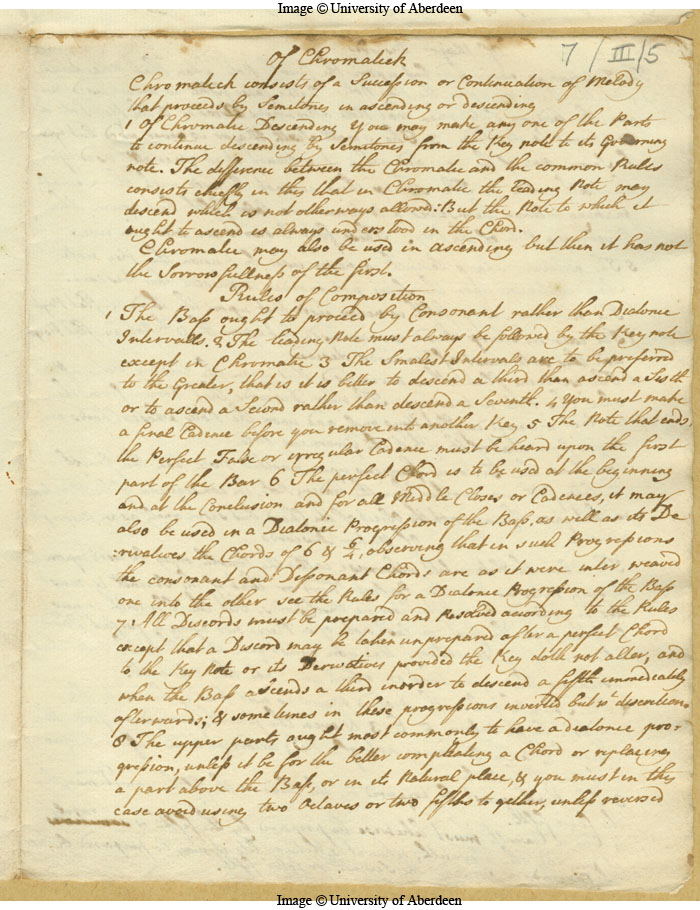 Image © University of Aberdeen
7/III/5
Of Chromatick
Chromatick consists of a Succession or Continuation of Melody
that proceeds by Semitones in ascending or descending
1 Of Chromatic Descending You may make any one of the Parts
to continue descending by Semitones from the Key note to its Governing
note. The difference between the Chromatic and the common Rules
consists chiefly in this that in Chromatic the leading Note may
descend which is not otherways allowed: But the Note to which it
ought to ascend is always understood in the Chord.
Chromatic may also be used in ascending but then it has not
the Sorrowfullness of the first.
Rules of Composition
1 The Bass ought to proceed by Consonant rather than Diatonic
Intervalls. 2 The leading Note must always be followed by the Key note
except in Chromatic 3 The Smalest Intervals are to be preferred
to the Greater, that is it is better to descend a third than ascend a Sixth
or to ascend a Second rather than descend a Seventh. 4 You must make
a final Cadence before you remove into another Key 5 The Note that ends
the Perfect False or irregular Cadence must be heard upon the first
part of the Bar 6 The perfect Chord is to be used at the beginning
and at the Conclusion and for all Middle Closes or Cadences, it may
also be used in a Diatonic Progression of the Bass, as well as its De
:rivatives the Chords of 6 & 6/4, observing that in such Progressions
the consonant and Dissonant Chords are as it were inter weaved
one into the other see the Rules for a Diatonic Progression of the Bass
7: All Discords must be prepared and Resolved according to the Rules
except that a Discord may be taken unprepared after a perfect Chord
to the Key Note or its Derivatives provided the Key doth not alter, and
when the Bass ascends a third in order to descend a fifth immediately
afterwards; & sometimes in these progressions inverted but wt discretion
8 The upper parts ought most commonly to have a diatonic pro-
gression, unless it be for the better compleating a Chord or replacing
a part above the Bass, or in its Natural place, & you must in this
case avoid using two Octaves or two fifths to gether, unless reversed
Image © University of Aberdeen